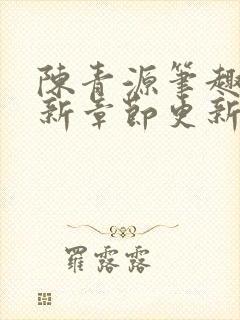 陳青源筆趣
新章節更新
羅露露